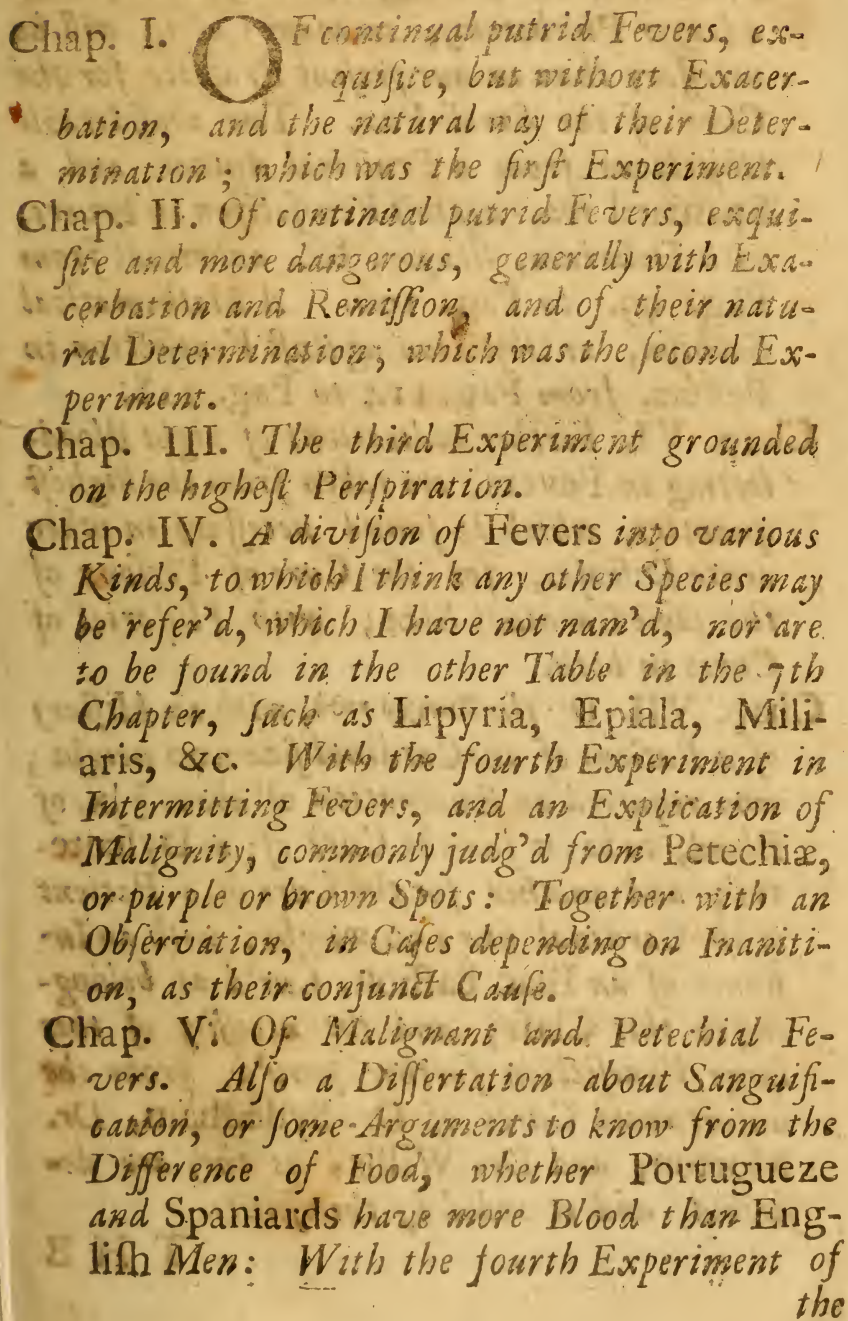 Chap. I. OF continual putrid Fevers, ex-
quiſite, but without Exacer-
bation, and the natural way of their Deter-
mination; which was the firſt Experiment.
Chap. II. Of continual putrid Fevers, exqui-
ſite and more dangerous, generally with Exa-
cerbation and Remiſſion, and of their natu-
ral Determination, which was the ſecond Ex-
periment.
Chap. III. The third Experiment grounded
on the higheſt Perſpiration.
Chap. IV. A diviſion of Fevers into various
Kinds, to which I think any other Species may
be refer'd, which I have not nam'd, nor are
to be found in the other Table in the 7th
Chapter, ſuch as Lipyria, Epiala, Mili-
aris, &c. With the fourth Experiment in
Intermitting Fevers, and an Explication of
Malignity, commonly judg'd from Petechiæ,
or purple or brown Spots: Together with an
Obſervation, in Caſes depending on Inaniti-
on, as their conjunct Cauſe.
Chap. V. Of Malignant and Petechial Fe-
vers. Alſo a Diſſertation about Sanguifi-
cation, or ſome Arguments to know from the
Difference of Food, whether Portugueze
and Spaniards have more Blood than Eng-
liſh Men: With the fourth Experiment of
the